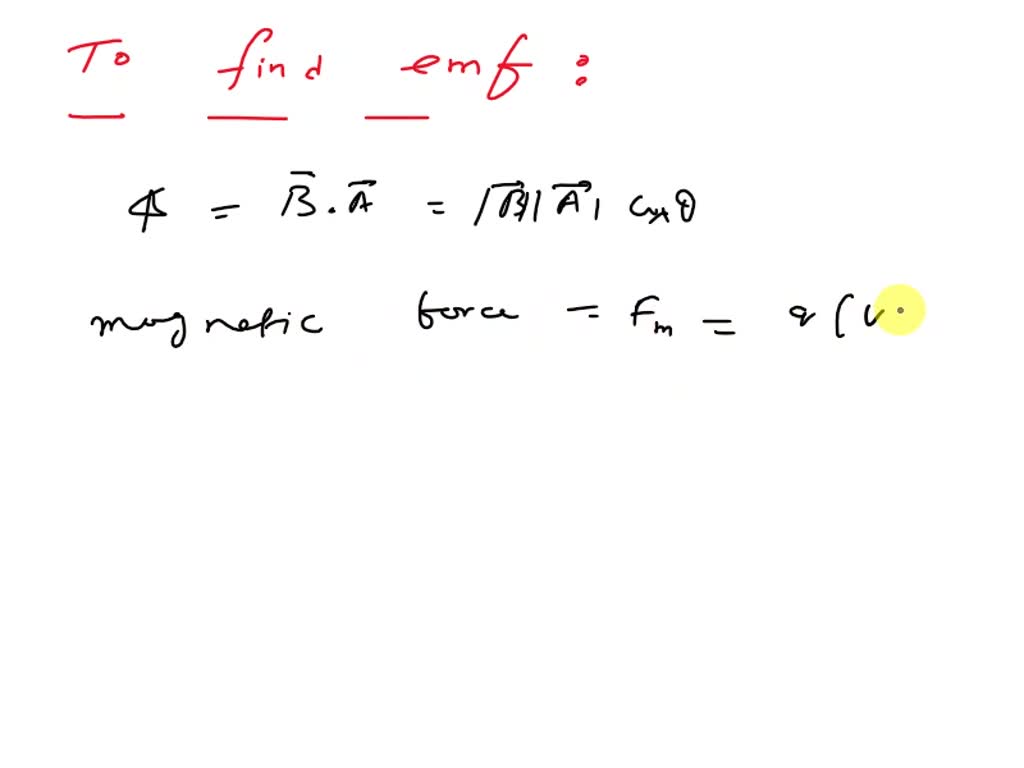 To find emf :
ϕ = B̅ . A⃗ = |B⃗||A⃗| cosθ
magnetic force = Fₘ = q (v